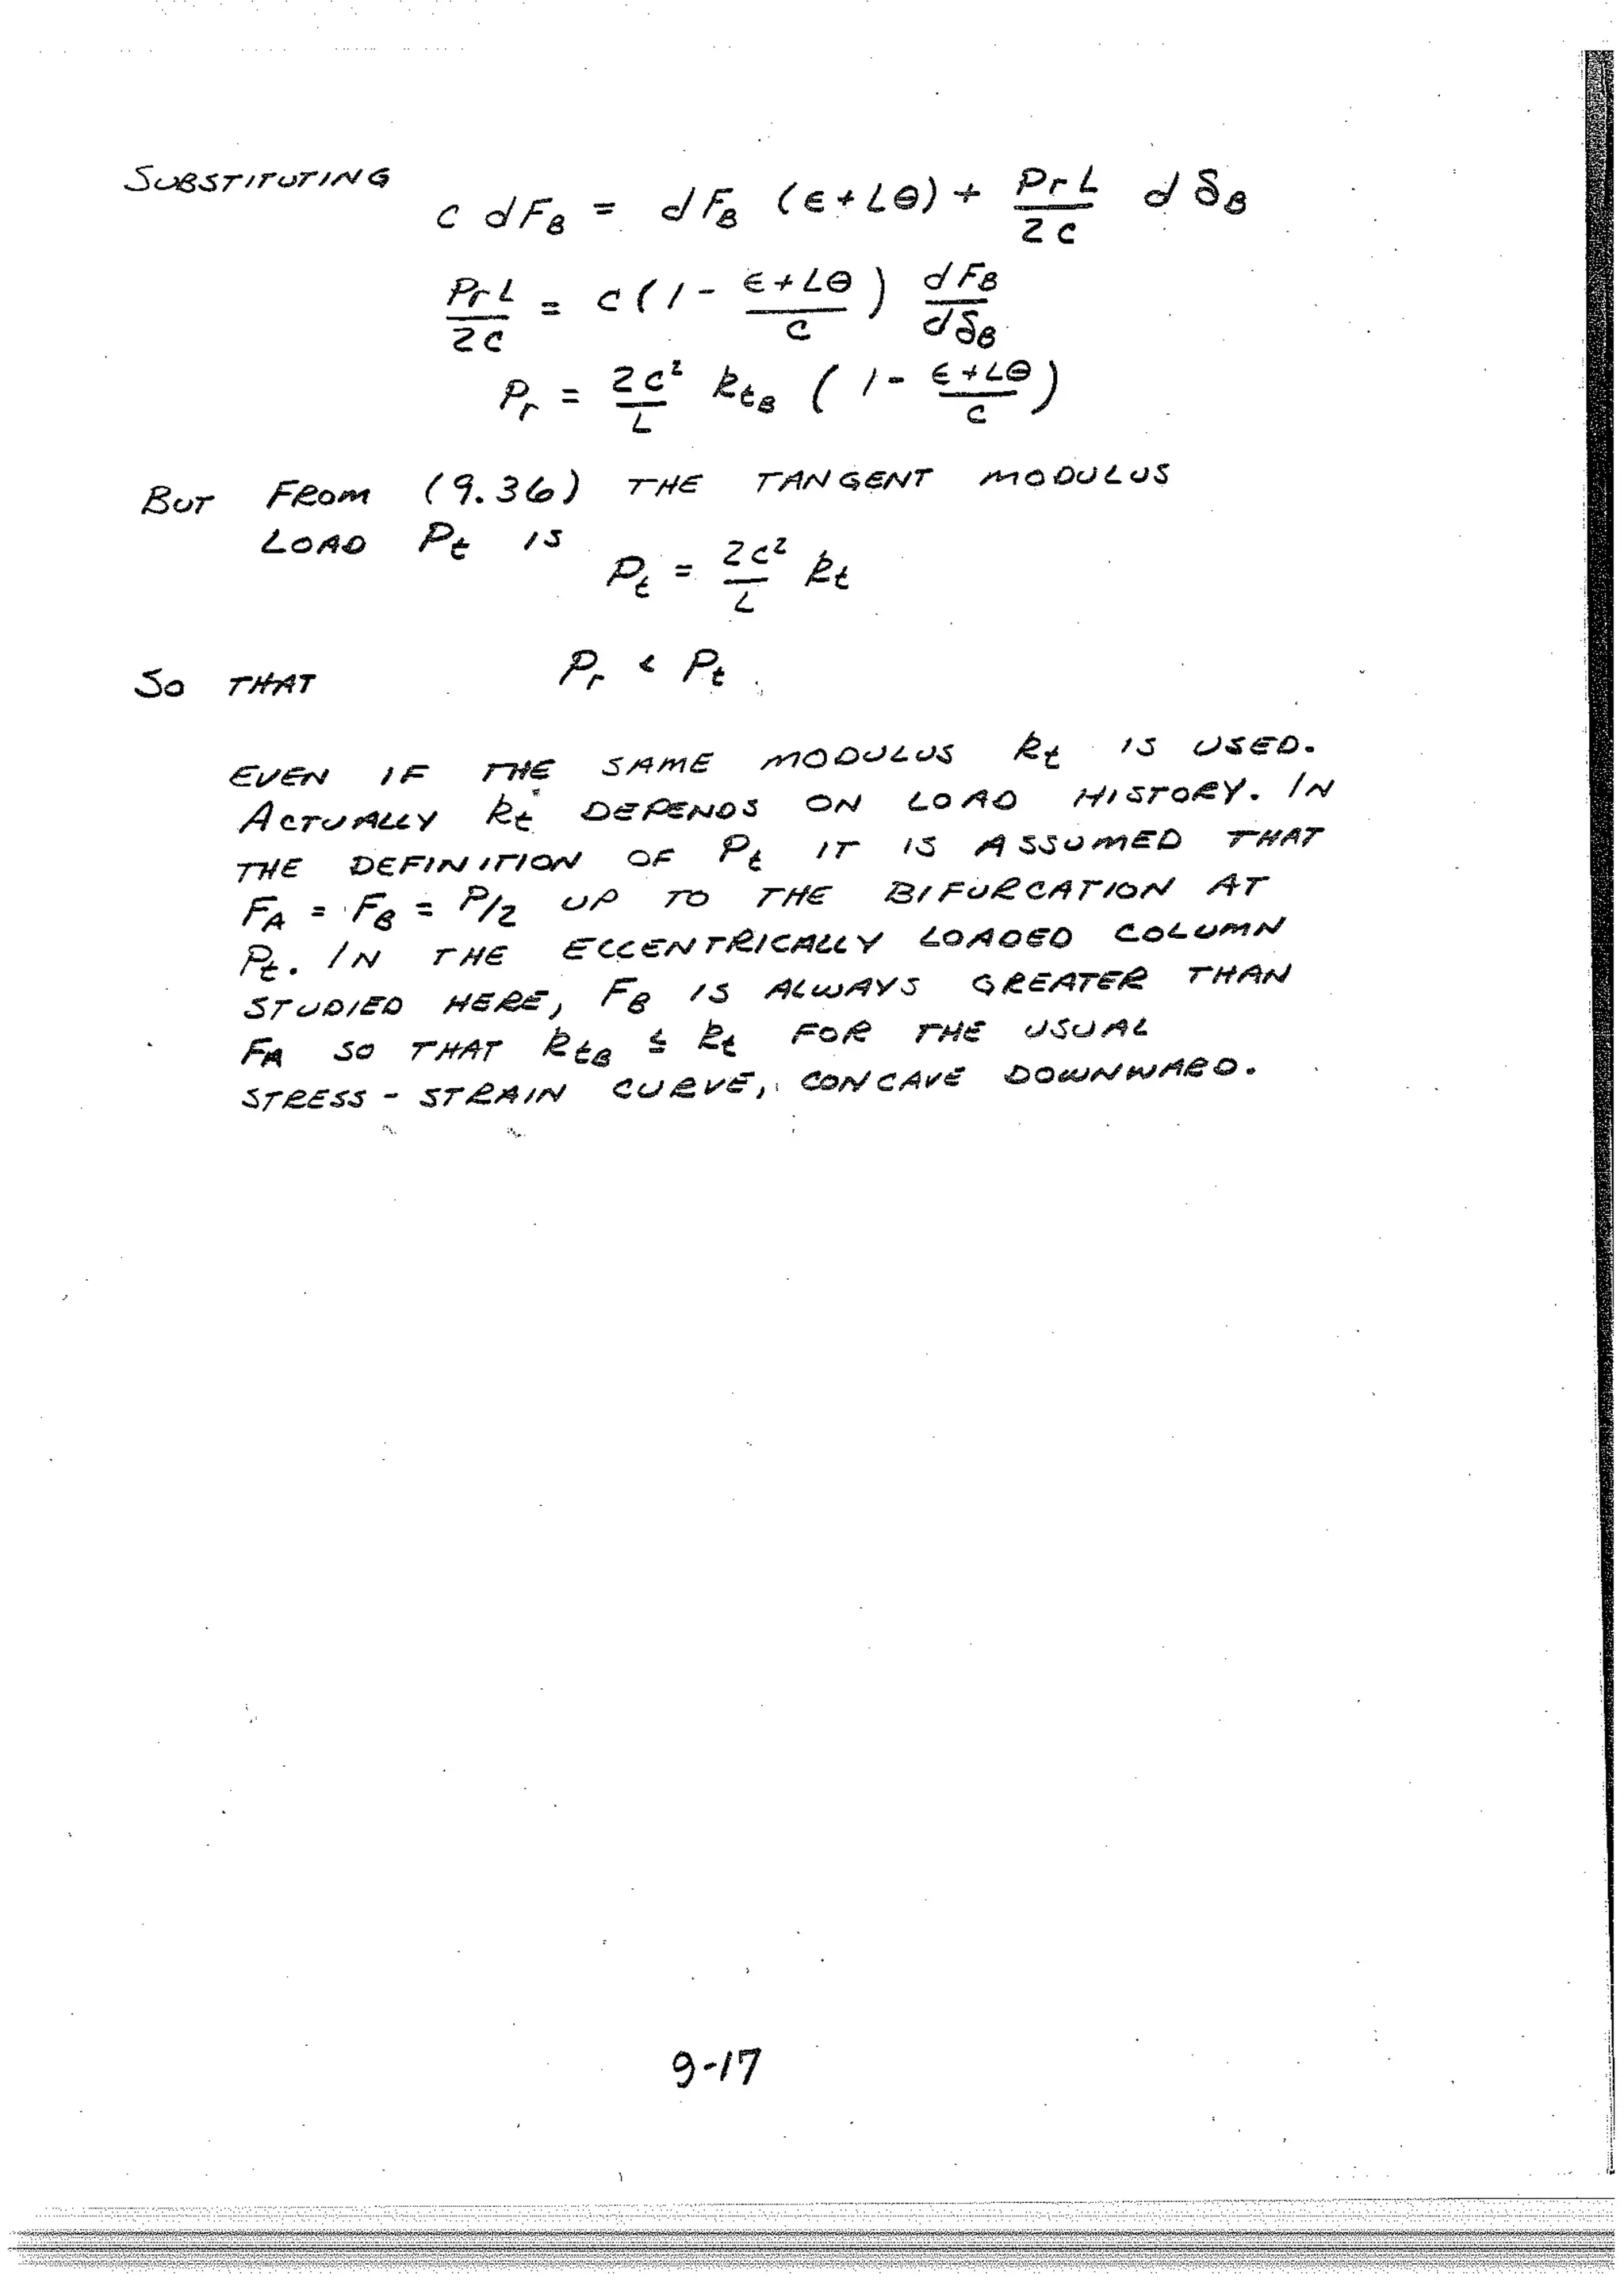 SUBSTITUTING
c dF_B = dF_B (ϵ + Lθ) + P_r L / 2c dδ_B
P_r L / 2c = c (1 - (ϵ + Lθ) / c) dF_B / dδ_B
P_r = 2c² / L k_tB (1 - (ϵ + Lθ) / c)
BUT FROM (9.36) THE TANGENT MODULUS
LOAD P_t IS
P_t = 2c² / L k_t
SO THAT P_r < P_t
EVEN IF THE SAME MODULUS k_t IS USED.
ACTUALLY k_t DEPENDS ON LOAD HISTORY. IN
THE DEFINITION OF P_t IT IS ASSUMED THAT
F_A = F_B = P/2 UP TO THE BIFURCATION AT
P_t. IN THE ECCENTRICALLY LOADED COLUMN
STUDIED HERE, F_B IS ALWAYS GREATER THAN
F_A SO THAT k_tB ≤ k_t FOR THE USUAL
STRESS - STRAIN CURVE, CONCAVE DOWNWARD.
9-17